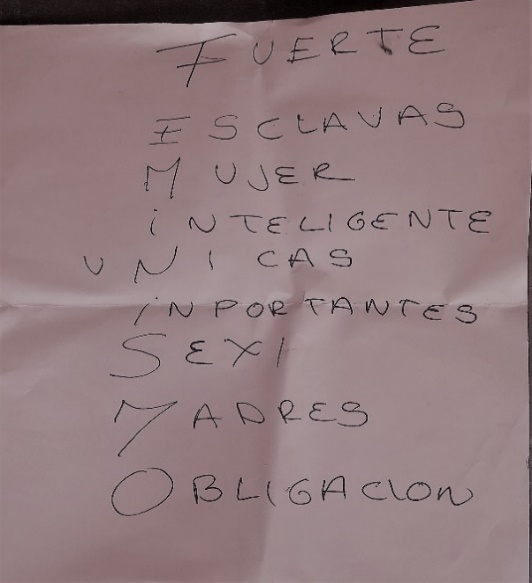 FUERTE
ESCLAVAS
MUJER
iNTELIGENTE
UNICAS
iNPORTANTES
SEXI
MADRES
OBLIGACION